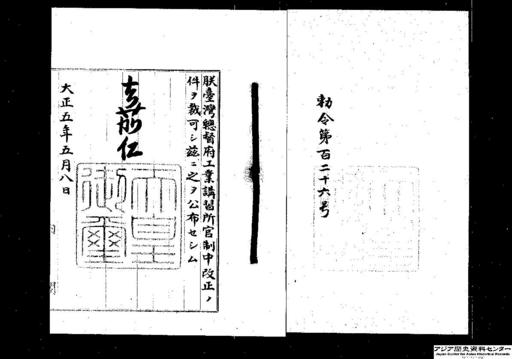 勅令第百二十六号
朕臺灣總督府工業講習所官制中改正ノ
件ヲ裁可シ茲ニ之ヲ公布セシム
嘉仁
天皇
御璽
大正五年五月八日
内閣
アジア歴史資料センター
Japan Center for Asian Historical Records